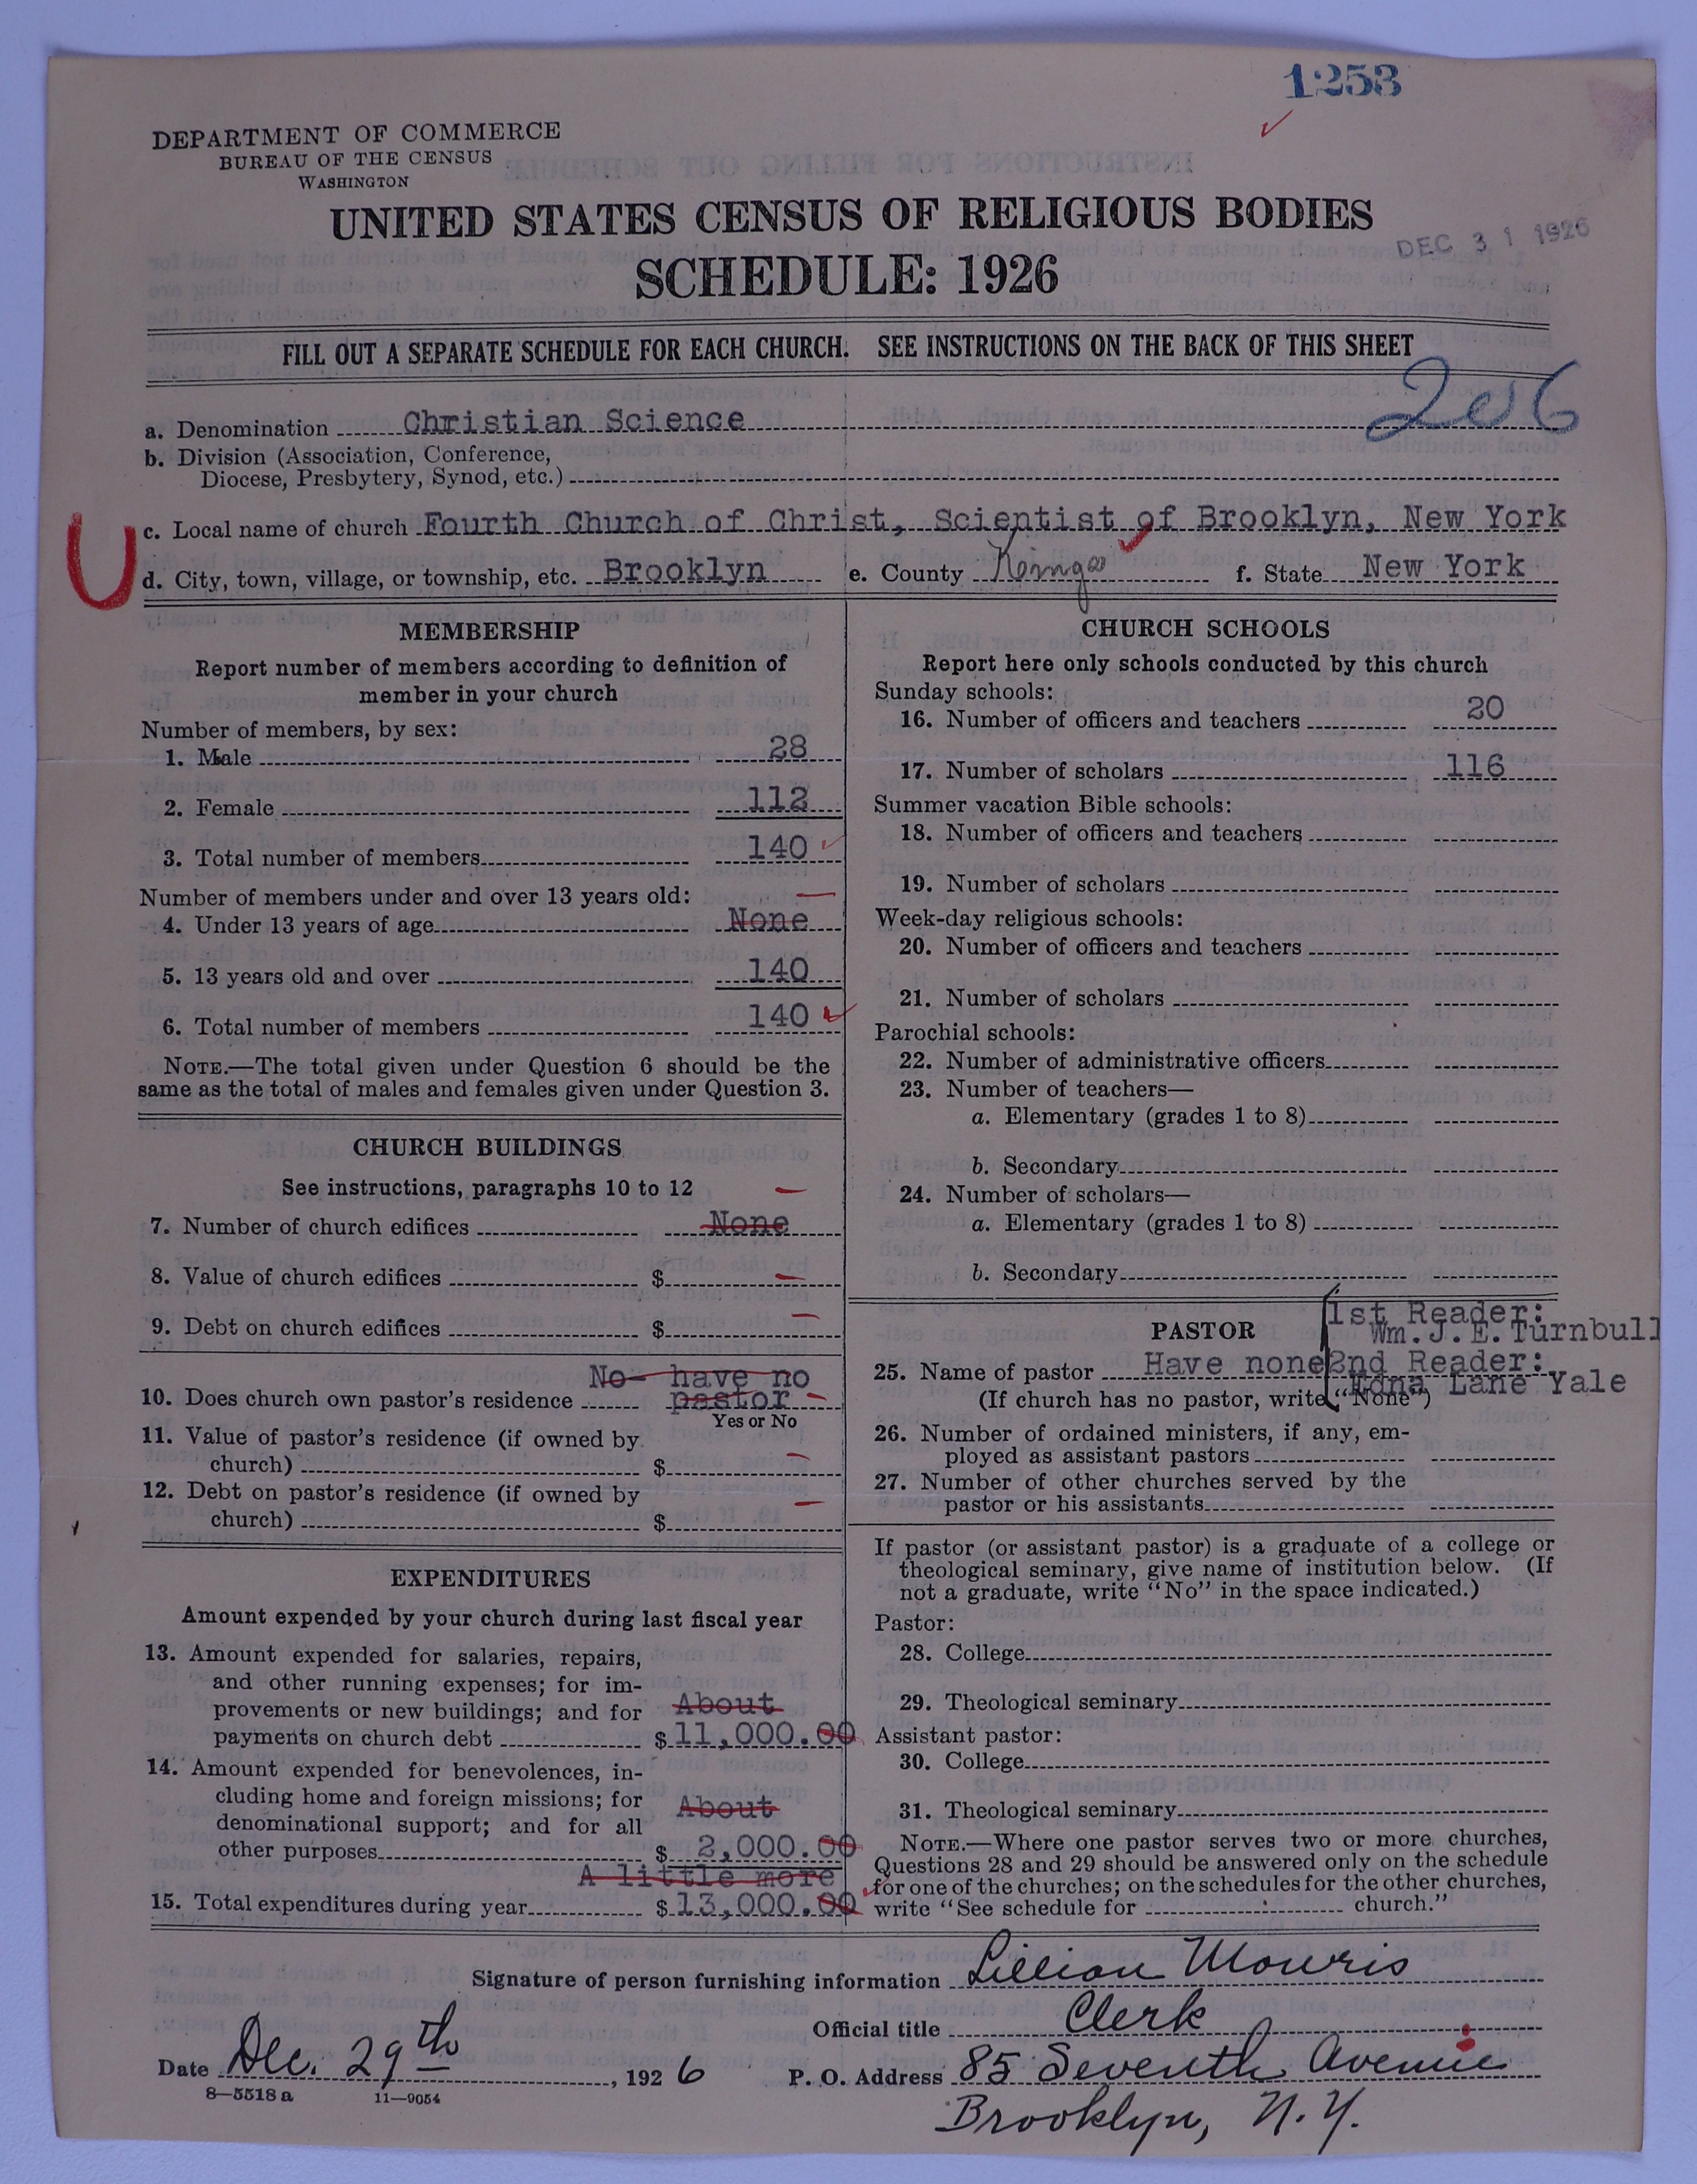 1253
DEPARTMENT OF COMMERCE
BUREAU OF THE CENSUS
WASHINGTON
UNITED STATES CENSUS OF RELIGIOUS BODIES
DEC 31 1926
SCHEDULE: 1926
FILL OUT A SEPARATE SCHEDULE FOR EACH CHURCH. SEE INSTRUCTIONS ON THE BACK OF THIS SHEET
206
a. Denomination Christian Science
b. Division (Association, Conference,
Diocese, Presbytery, Synod, etc.)
c. Local name of church Fourth Church of Christ, Scientist of Brooklyn, New York
d. City, town, village, or township, etc. Brooklyn e. County Kings f. State New York
MEMBERSHIP
Report number of members according to definition of
member in your church
Number of members, by sex:
1. Male 28
2. Female 112
3. Total number of members 140
Number of members under and over 13 years old:
4. Under 13 years of age None
5. 13 years old and over 140
6. Total number of members 140
NOTE.—The total given under Question 6 should be the
same as the total of males and females given under Question 3.
CHURCH BUILDINGS
See instructions, paragraphs 10 to 12
7. Number of church edifices None
8. Value of church edifices $
9. Debt on church edifices $
No- have no
10. Does church own pastor's residence pastor
Yes or No
11. Value of pastor's residence (if owned by
church) $
12. Debt on pastor's residence (if owned by
church) $
EXPENDITURES
Amount expended by your church during last fiscal year
13. Amount expended for salaries, repairs,
and other running expenses; for im-
provements or new buildings; and for About
payments on church debt $ 11,000.00
14. Amount expended for benevolences, in-
cluding home and foreign missions; for About
denominational support; and for all
other purposes $ 2,000.00
A little more
15. Total expenditures during year $ 13,000.00
CHURCH SCHOOLS
Report here only schools conducted by this church
Sunday schools:
16. Number of officers and teachers 20
17. Number of scholars 116
Summer vacation Bible schools:
18. Number of officers and teachers
19. Number of scholars
Week-day religious schools:
20. Number of officers and teachers
21. Number of scholars
Parochial schools:
22. Number of administrative officers
23. Number of teachers—
a. Elementary (grades 1 to 8)
b. Secondary
24. Number of scholars—
a. Elementary (grades 1 to 8)
b. Secondary
1st Reader:
PASTOR Wm. J. E. Turnbull
25. Name of pastor Have none 2nd Reader:
Edna Lane Yale
(If church has no pastor, write "None")
26. Number of ordained ministers, if any, em-
ployed as assistant pastors
27. Number of other churches served by the
pastor or his assistants
If pastor (or assistant pastor) is a graduate of a college or
theological seminary, give name of institution below. (If
not a graduate, write "No" in the space indicated.)
Pastor:
28. College
29. Theological seminary
Assistant pastor:
30. College
31. Theological seminary
NOTE.—Where one pastor serves two or more churches,
Questions 28 and 29 should be answered only on the schedule
for one of the churches; on the schedules for the other churches,
write "See schedule for church."
Signature of person furnishing information Lillian Mowris
Official title Clerk
Date Dec. 29th, 1926 P. O. Address 85 Seventh Avenue
8—5518 a 11—9054
Brooklyn, N.Y.